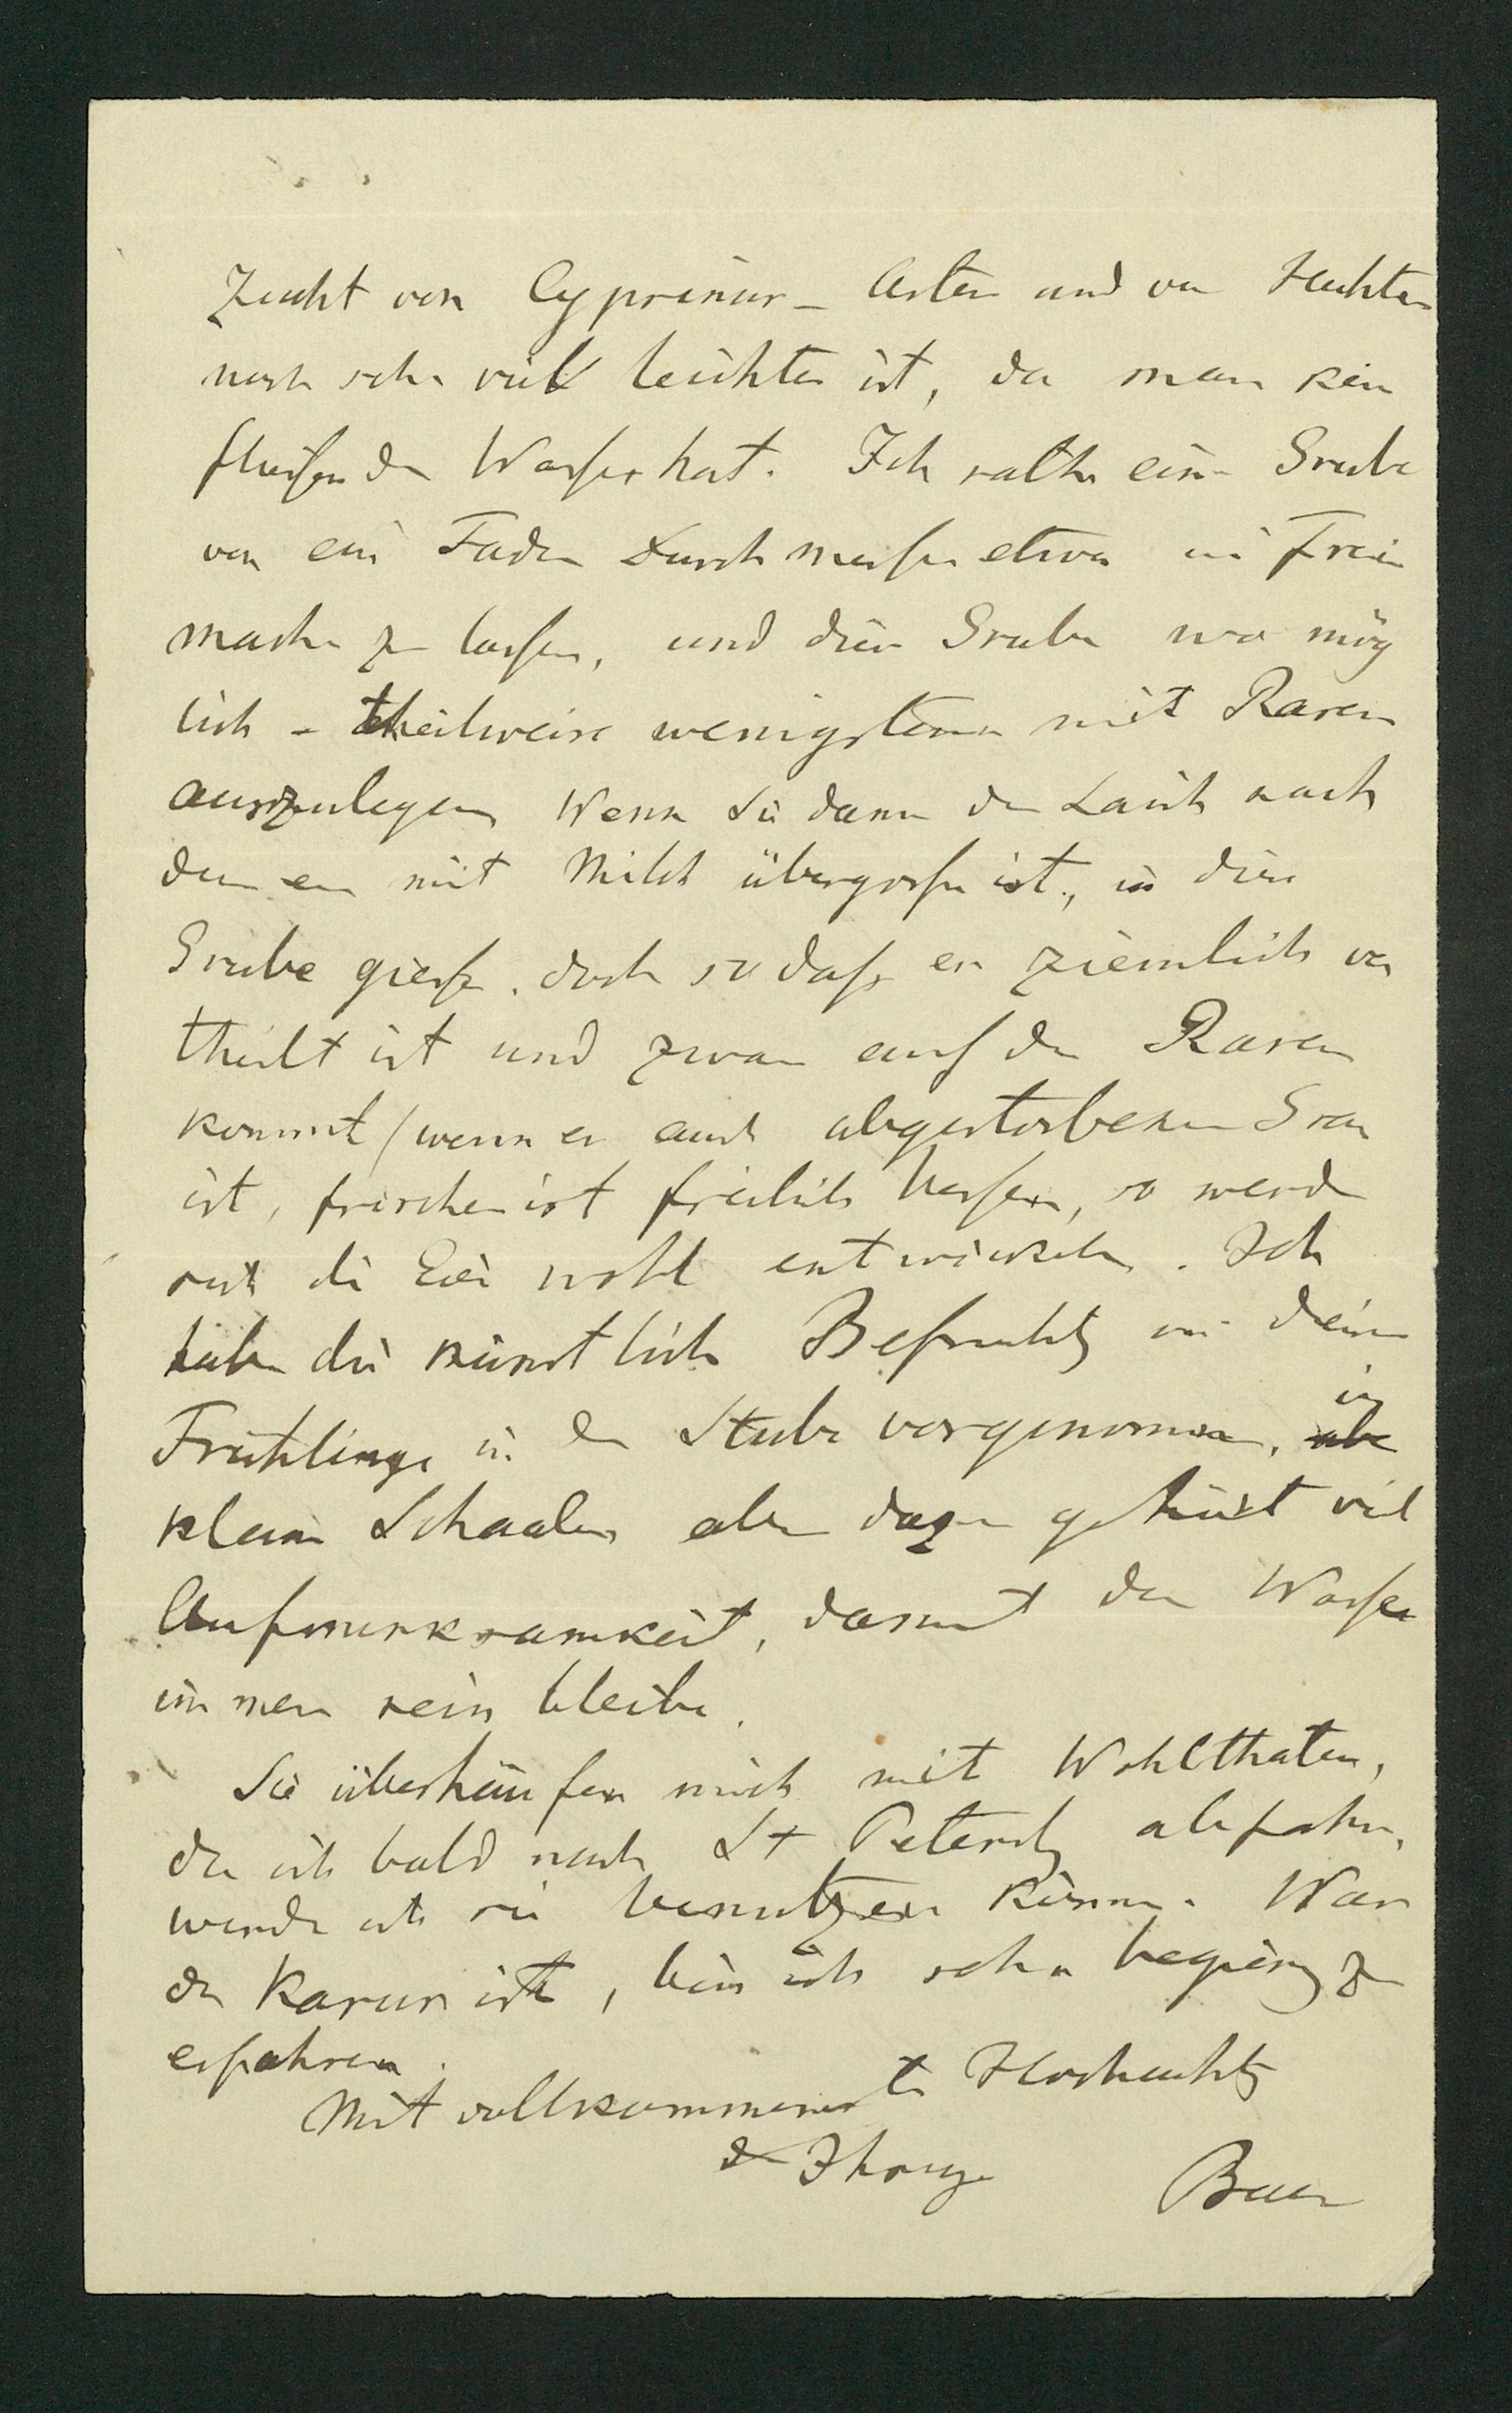 Zucht von Cyprinus-Arten und von Hechten
noch sehr viel leichter ist, da man kein
fließendes Wasser hat. Ich rathe eine Grube
von ein Faden Durchmesser etwa im Freien
machen zu lassen, und diese Grube wo mög
lich - theilweise wenigstens mit Rasen
auszulegen. Wenn Sie dann den Laich nach
dem er mit Milch übergossen ist, in diese
Grube gießen, doch so daß er ziemlich ver
theilt ist und zwar auf den Rasen
kommt (wenn es auch abgestorbenes Gras
ist, frisches ist freilich besser, so werden
sich die Eier wohl entwickeln. Ich
habe die künstliche Befruchtg in diesem
Frühlinge in der Stube vorgenommen, aber in
kleinen Schaalen aber dazu gehört viel
Aufmerksamkeit, damit das Wasser
immer rein bleibe.
Sie überhäufen mich mit Wohlthaten,
da ich bald nach St Petersb abfahre,
werde ich sie benutzen können. Was
der Karus ist, bin ich sehr begierig zu
erfahren.
Mit vollkommenster Hochachtg
der Ihrige
Baer